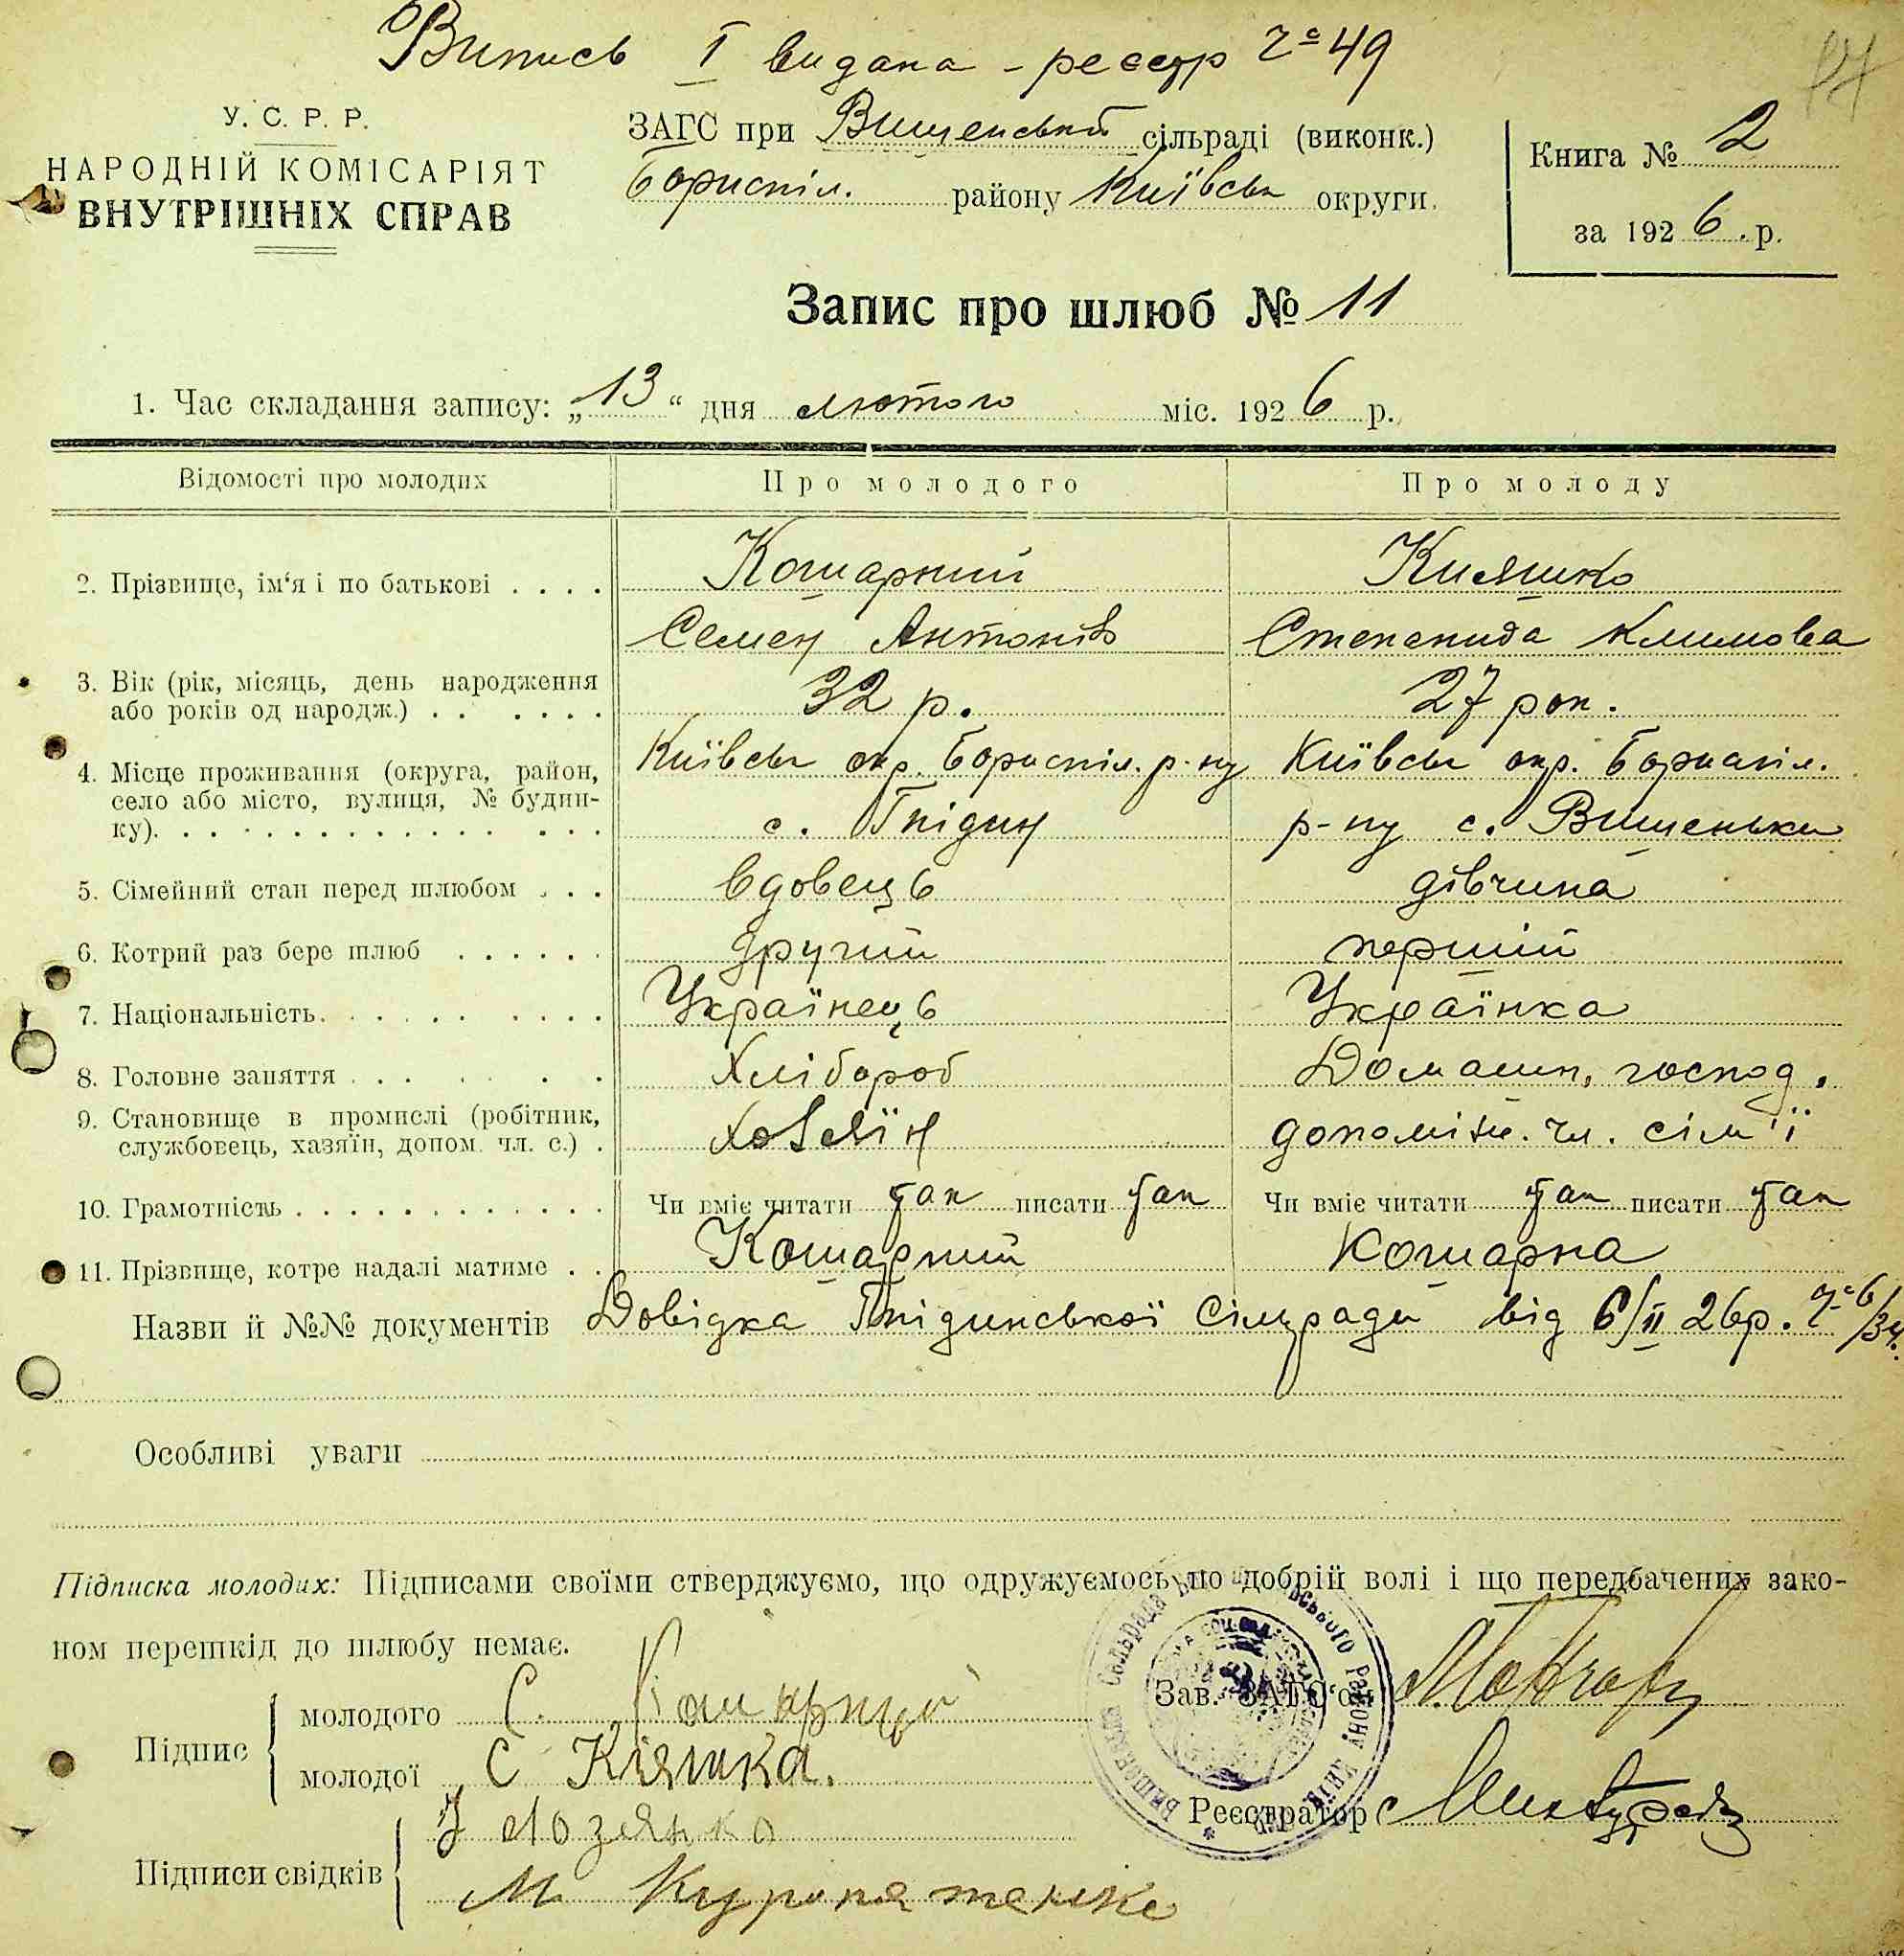 Випись I видана - реєстр Ч. 49
17
У. С. Р. Р.
НАРОДНІЙ КОМІСАРІЯТ
ВНУТРІШНІХ СПРАВ
ЗАГС при Вишенській сільраді (виконк.)
Бориспіл. району Київськ округи.
Книга № 2
за 1926. р.
Запис про шлюб № 11
1. Час складання запису: „13“ дня лютого міс. 1926 р.
Відомості про молодих
Про молодого
Про молоду
2. Прізвище, ім‘я і по батькові . . . .
Кошарний
Кияшко
Семен Антонів
Степанида Климова
3. Вік (рік, місяць, день народження
або років од народж.) . . . . . .
32 р.
27 рок.
4. Місце проживання (округа, район,
село або місто, вулиця, № будин-
ку). . . . . . . . . . . . . . .
Київськ окр. Бориспіл. р-ну
с. Гнідин
Київськ окр. Бориспіл.
р-ну с. Вишеньки
5. Сімейний стан перед шлюбом . . .
вдовець
дівчина
6. Котрий раз бере шлюб . . . . . .
другий
перший
7. Національність. . . . . . . . . .
Українець
Українка
8. Головне заняття . . . . . . .
Хлібороб
Домашн. господ.
9. Становище в промислі (робітник,
службовець, хазяїн, допом. чл. с.) .
Хозяїн
допоміж. чл. сім'ї
10. Грамотність . . . . . . . . . . . .
Чи вміє читати так писати так
Чи вміє читати так писати так
11. Прізвище, котре надалі матиме . .
Кошарний
Кошарна
Назви й №№ документів Довідка Гнідинської Сільради від 6/II 26р. Ч. 6/34.
Особливі уваги
Підписка молодих: Підписами своїми стверджуємо, що одружуємось по добрій волі і що передбачених зако-
ном перешкід до шлюбу немає.
Підпис
молодого С. Кошарний
молодої С Кіяшка.
Зав. ЗАГС'ом
Реєстратор
Підписи свідків
Лозянко
М Куропятенко